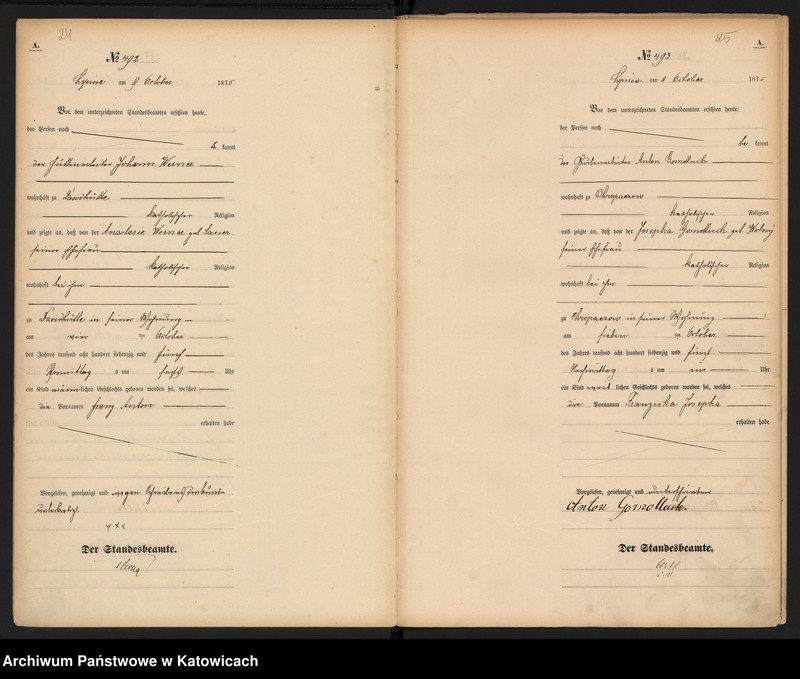 24
A.
№ 492
Lipine am 9 October 1875
Vor dem unterzeichneten Standesbeamten erschien heute,
der Person nach
be kannt
der Hüttenarbeiter Johann Wernce
wohnhaft zu
katholischer Religion
und zeigte an, daß von der Anastasie Wernce geb.
seiner Ehefrau
katholischer Religion
wohnhaft bei ihm
zu in seiner Wohnung
am vier ten October
des Jahres tausend acht hundert siebenzig und fünf
Vormittag s um sechs Uhr
ein Kind männlichen Geschlechts geboren worden sei, welches
die Vornamen Franz Anton
erhalten habe
Vorgelesen, genehmigt und wegen Schreibensunkunde
unterkreuzt.
+++
Der Standesbeamte.
25
A.
№ 493
Lipine am October 1875
Vor dem unterzeichneten Standesbeamten erschien heute,
der Person nach
be kannt
der Grubenarbeiter Anton Gomolluch
wohnhaft zu Chropaczow
katholischer Religion
und zeigte an, daß von der Josepha Gomolluch geb. Wolny
seiner Ehefrau
katholischer Religion
wohnhaft bei ihm
zu Chropaczow in seiner Wohnung
am sieben ten October
des Jahres tausend acht hundert siebenzig und fünf
Nachmittag s um ein Uhr
ein Kind weiblichen Geschlechts geboren worden sei, welches
die Vornamen Franziska Josepha
erhalten habe
Vorgelesen, genehmigt und unterschrieben
Anton Gomolluch.
Der Standesbeamte.
Archiwum Państwowe w Katowicach